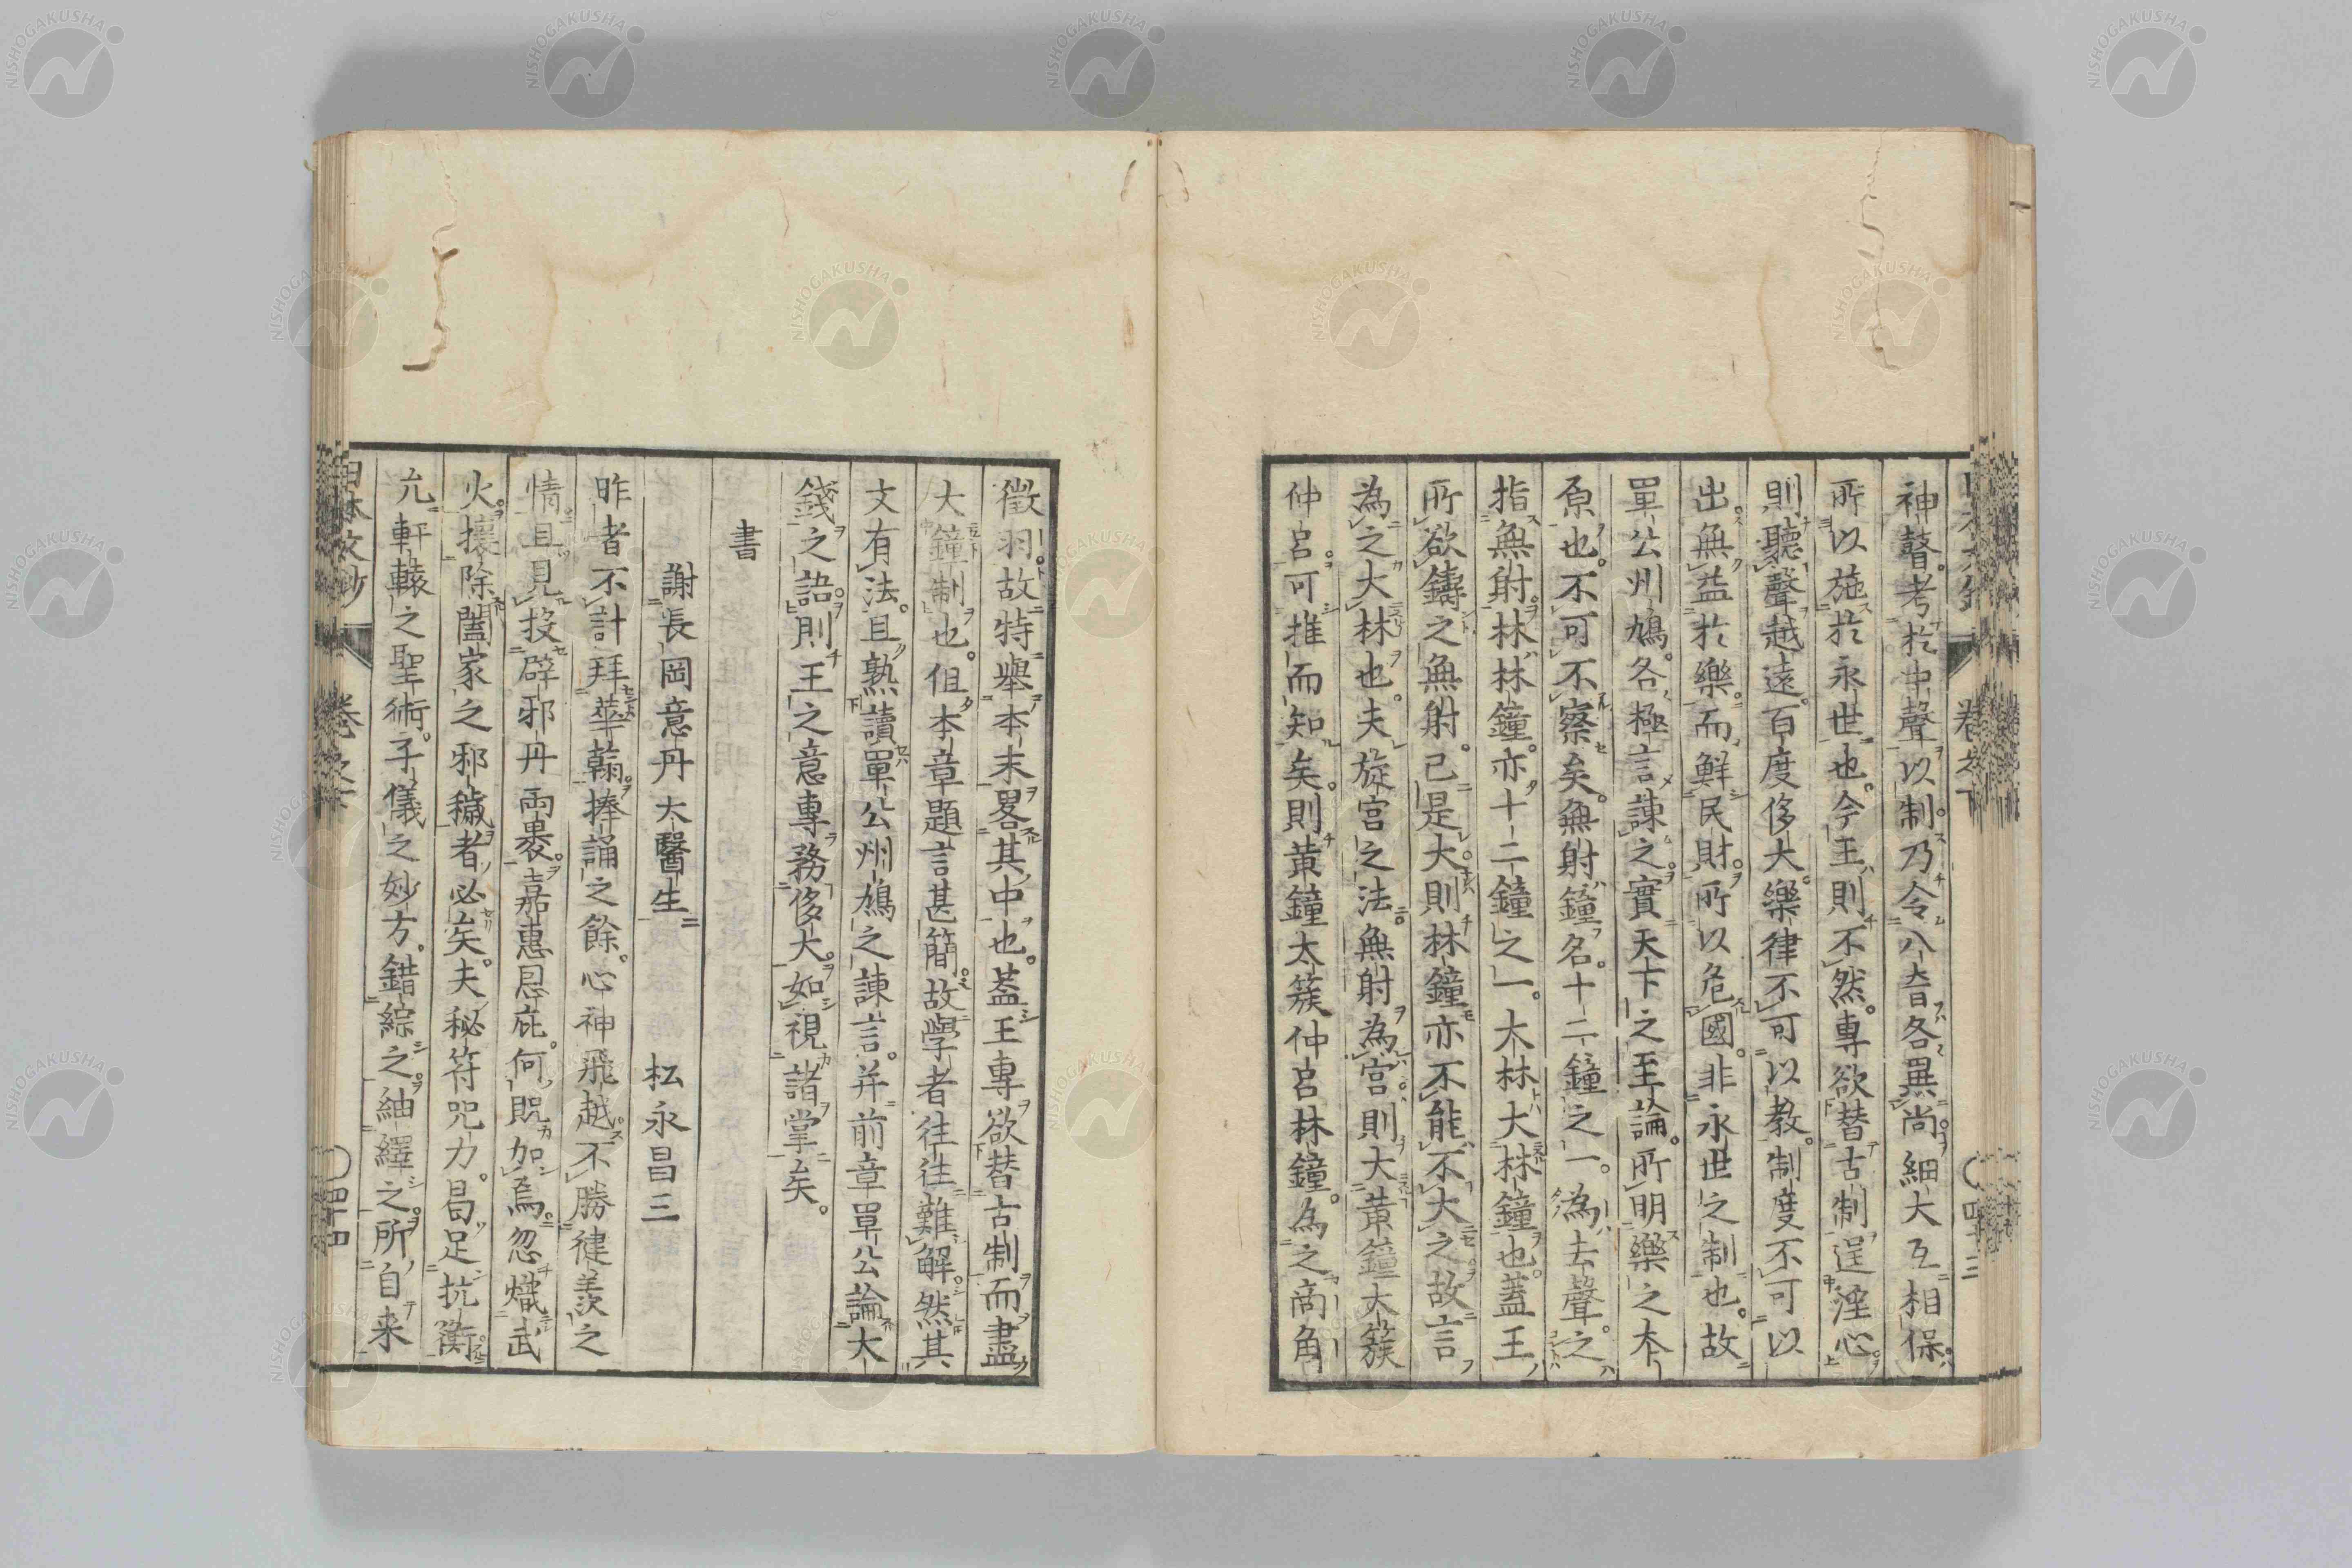 神瞽考於中聲以制乃令八音各異尚細大互相保
所以施於永世也今王則不然專欲替古制逞淫心
則聽聲越遠百度侈大樂律不可以教制度不可以
出無益於樂而鮮民財所以危國非永世之制也故
單公州鳩各極言諫之實天下之至論所明樂之本
原也不可不察矣無射鐘名十二鐘之一為去聲之
指無射林林鐘亦十二鐘之一大林大林鐘也蓋王
所欲鑄之無射已是大則林鐘亦不能不大之故言
為之大林也夫旋宮之法無射為宮則大黃鐘大簇
仲呂可推而知矣則黃鐘太簇仲呂林鐘為之商角
徵羽故特舉本末畧其中也蓋王專欲替古制而盡
大鐘制也但本章題言甚簡故學者往往難解然其
文有法且熟讀單公州鳩之諫言并前章單公論大
錢之語則王之意專務侈大如視諸掌矣
書
謝長岡意丹大醫生
松永昌三
昨者不計拜華翰捧誦之餘心神飛越不勝健羨之
情且見投辟邪丹兩裹嘉惠恩庇何貺加焉忽熾武
火攘除闔家之邪穢者必矣夫秘符咒力曷足抗衡
尤軒轅之聖術子儀之妙方錯綜之紬繹之所自来
日本文鈔
卷之下
四十四